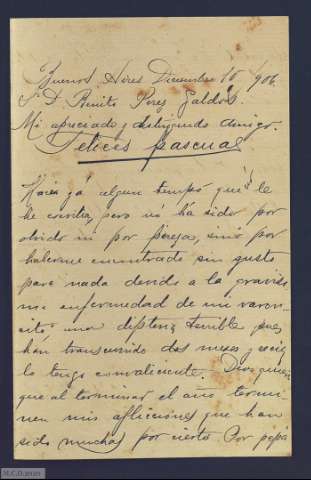 Buenos Aires Diciembre 10/906
S. D. Benito Perez Galdós.
Mi apreciado y distinguido amigo.
Felices pascuas
Hacia ya algun tempo que le
he escrito, pero no ha sido por
olvido ni por pereza, sino por
haberme encontrado sin gusto
para nada devido a la gravisi
ma enfermedad de mi varon-
sito una difteria terrible pues
han transcurrido dos meses y recien
lo tengo convaleciente. Dios quiera
que al terminar el año termi
nen mis aflicciones que han
sido muchas por cierto Por papá